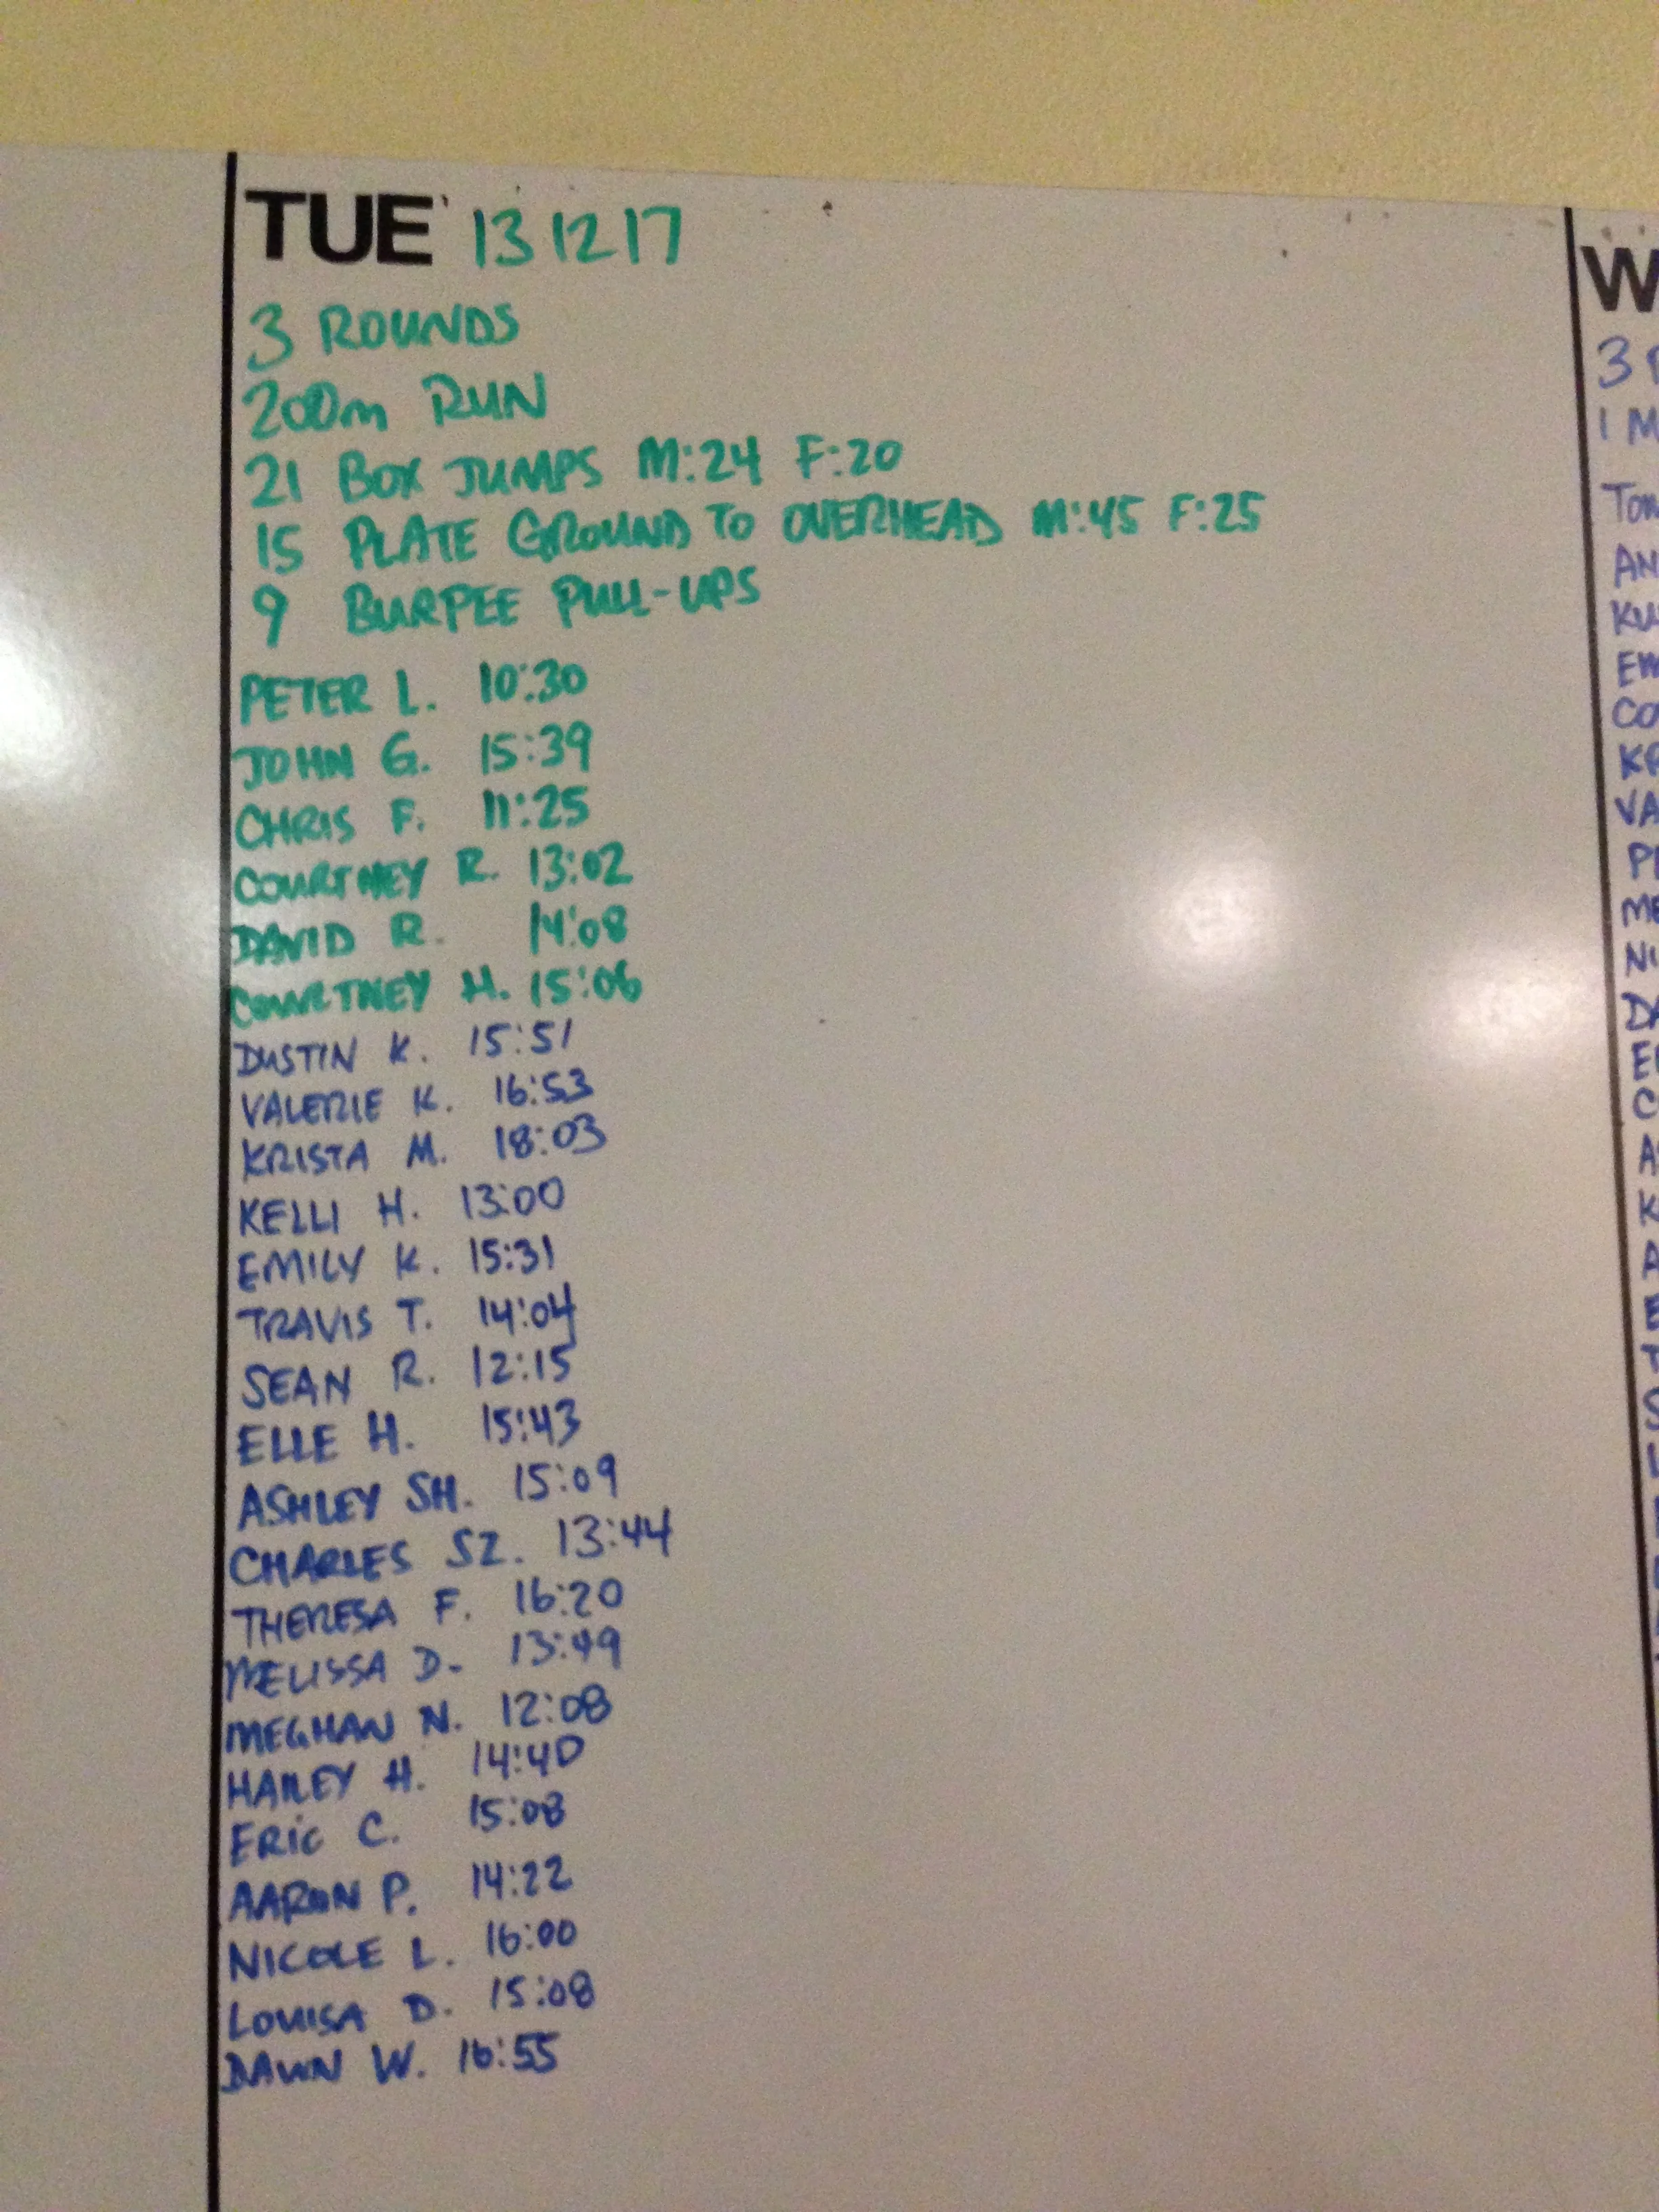 TUE 131217
3 ROUNDS
200m RUN
21 BOX JUMPS M:24 F:20
15 PLATE GROUND TO OVERHEAD M:45 F:25
9 BURPEE PULL-UPS
PETER L. 10:30
JOHN G. 15:39
CHRIS F. 11:25
COURTNEY R. 13:02
DAVID R. 14:08
COURTNEY H. 15:08
DUSTIN K. 15:51
VALERIE K. 16:53
KRISTA M. 18:03
KELLI H. 13:00
EMILY K. 15:31
TRAVIS T. 14:04
SEAN R. 12:15
ELLE H. 15:43
ASHLEY SH. 15:09
CHARLES SZ. 13:44
THERESA F. 16:20
MELISSA D. 13:49
MEGHAN N. 12:08
HAILEY H. 14:40
ERIC C. 15:08
AARON P. 14:22
NICOLE L. 16:00
LOUISA D. 15:08
DAWN W. 16:55
W
3
1 M